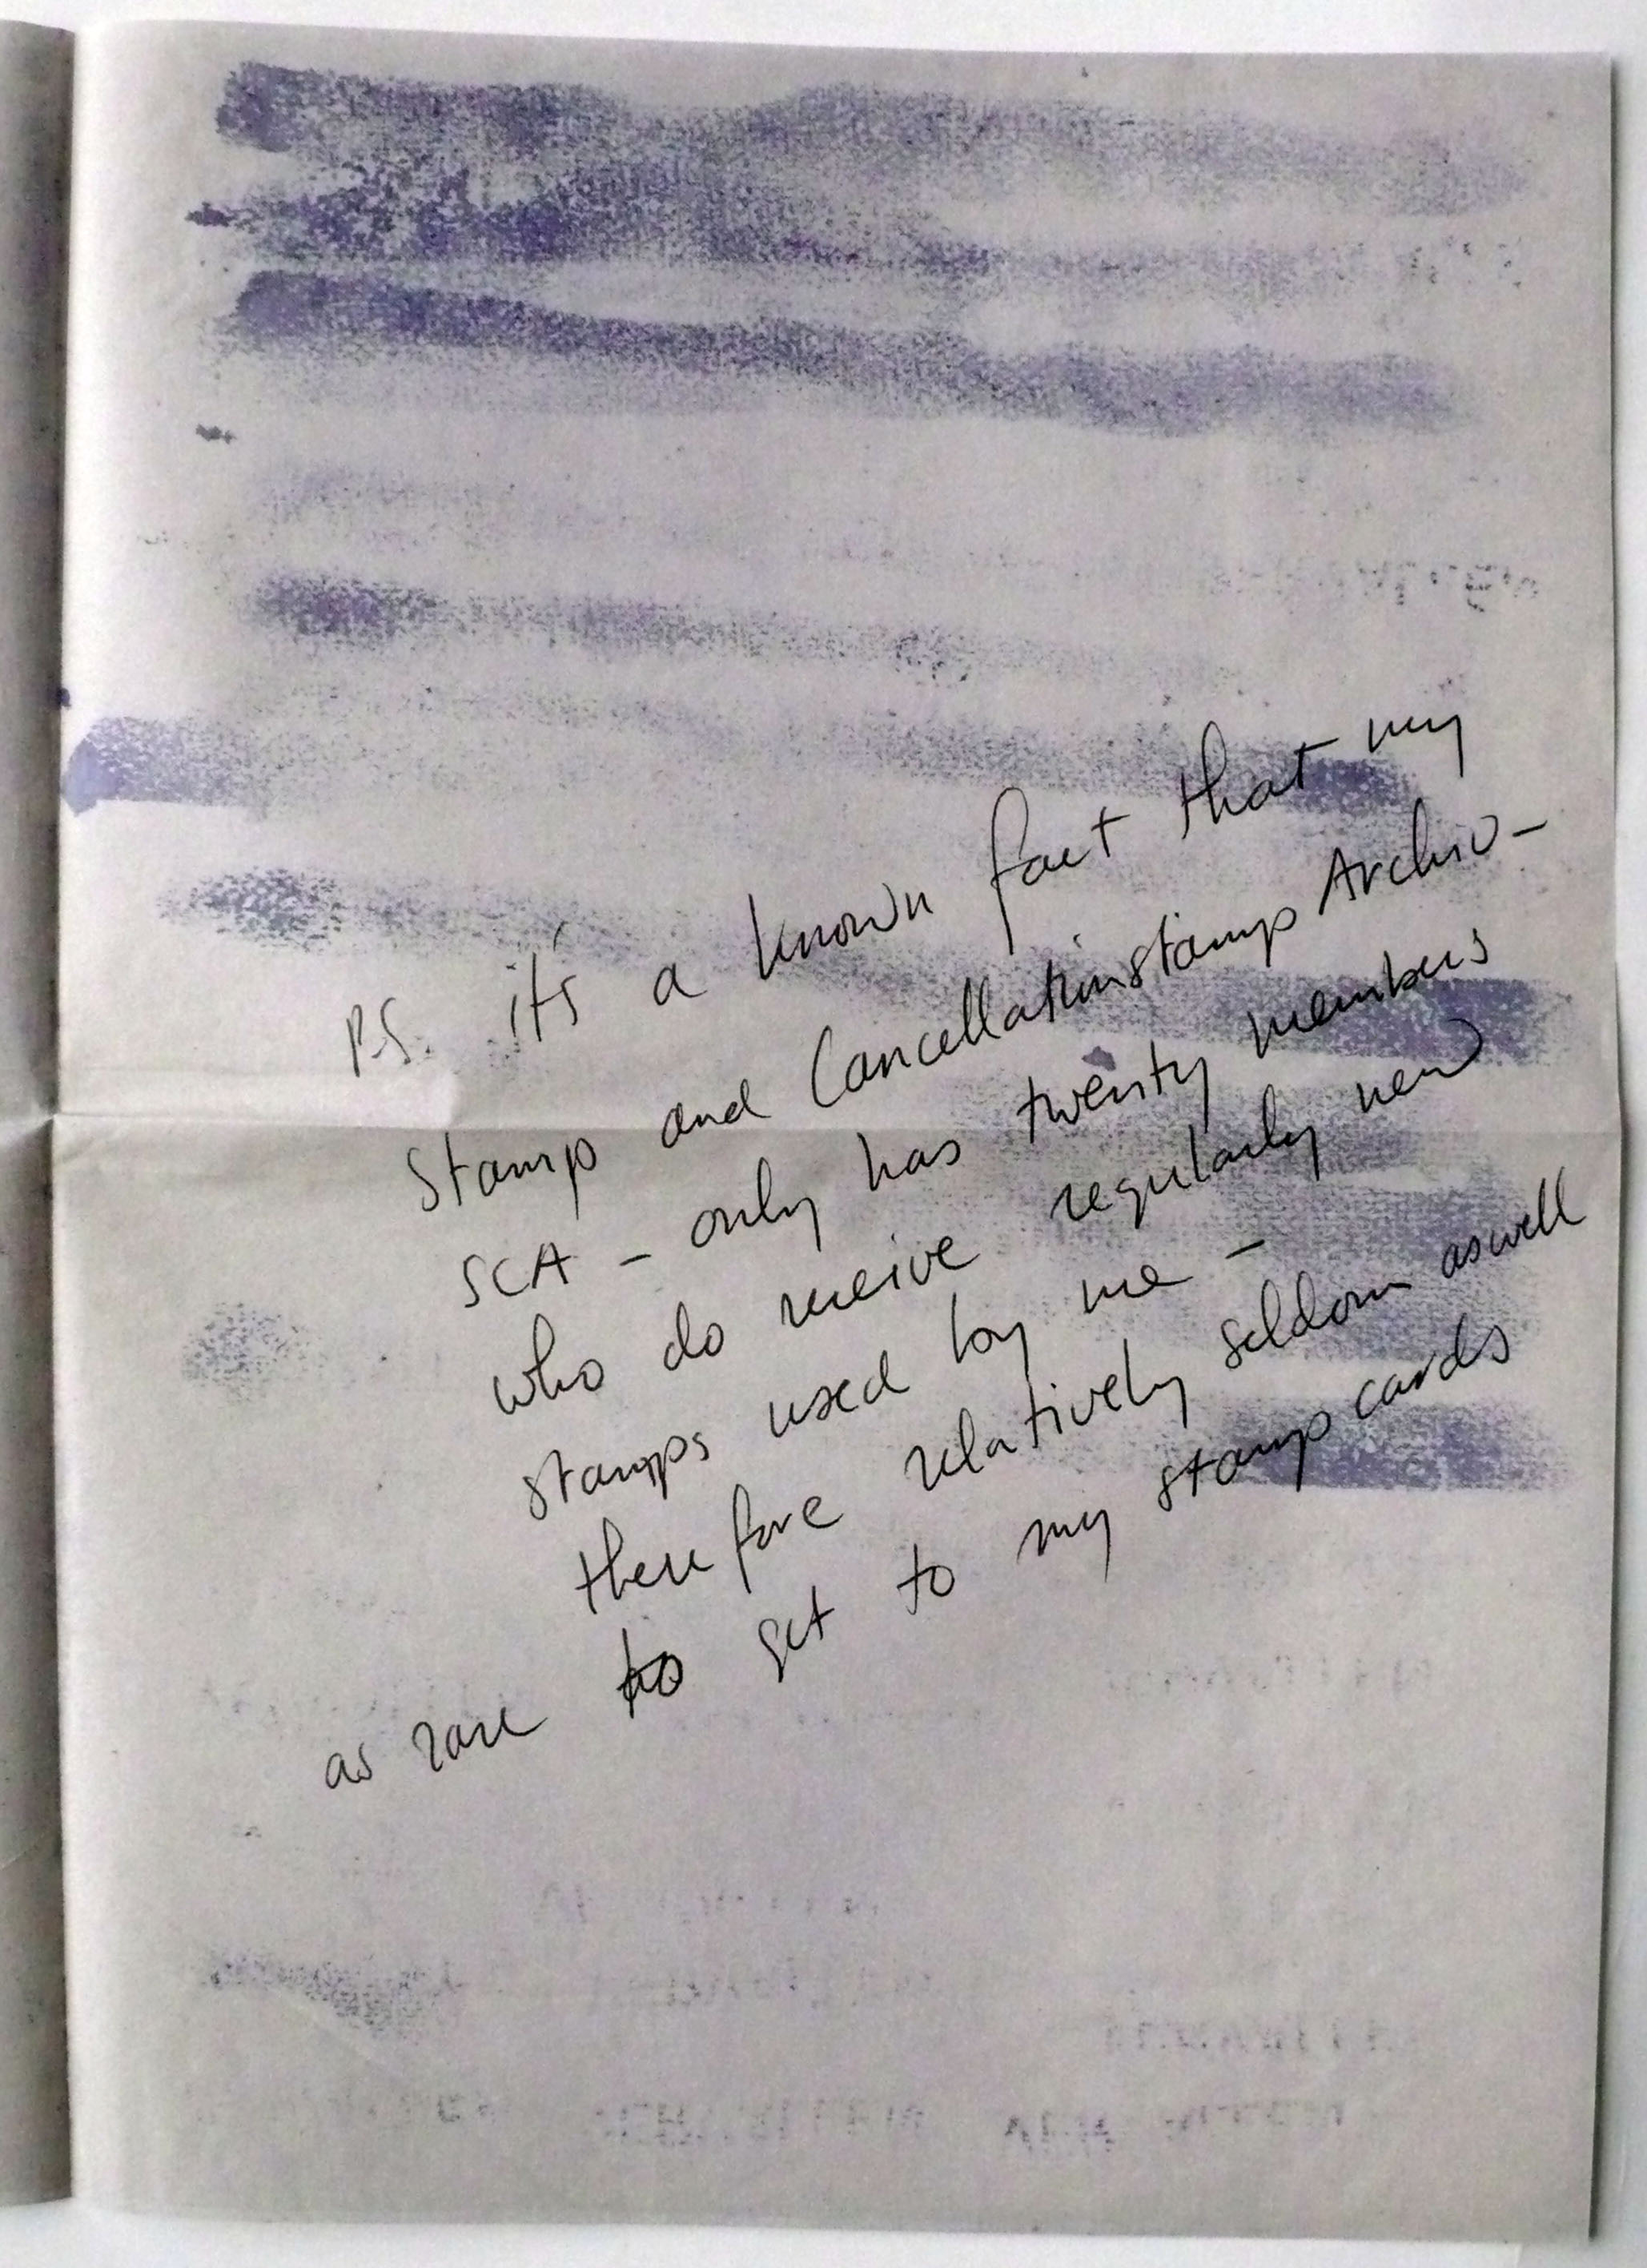 P.S. it's a known fact that my
Stamp and Cancellationstamp Archiv-
SCA - only has twenty members
who do receive regularly new
stamps used by me -
therefore relatively seldom aswell
as rare to get to my stamp cards